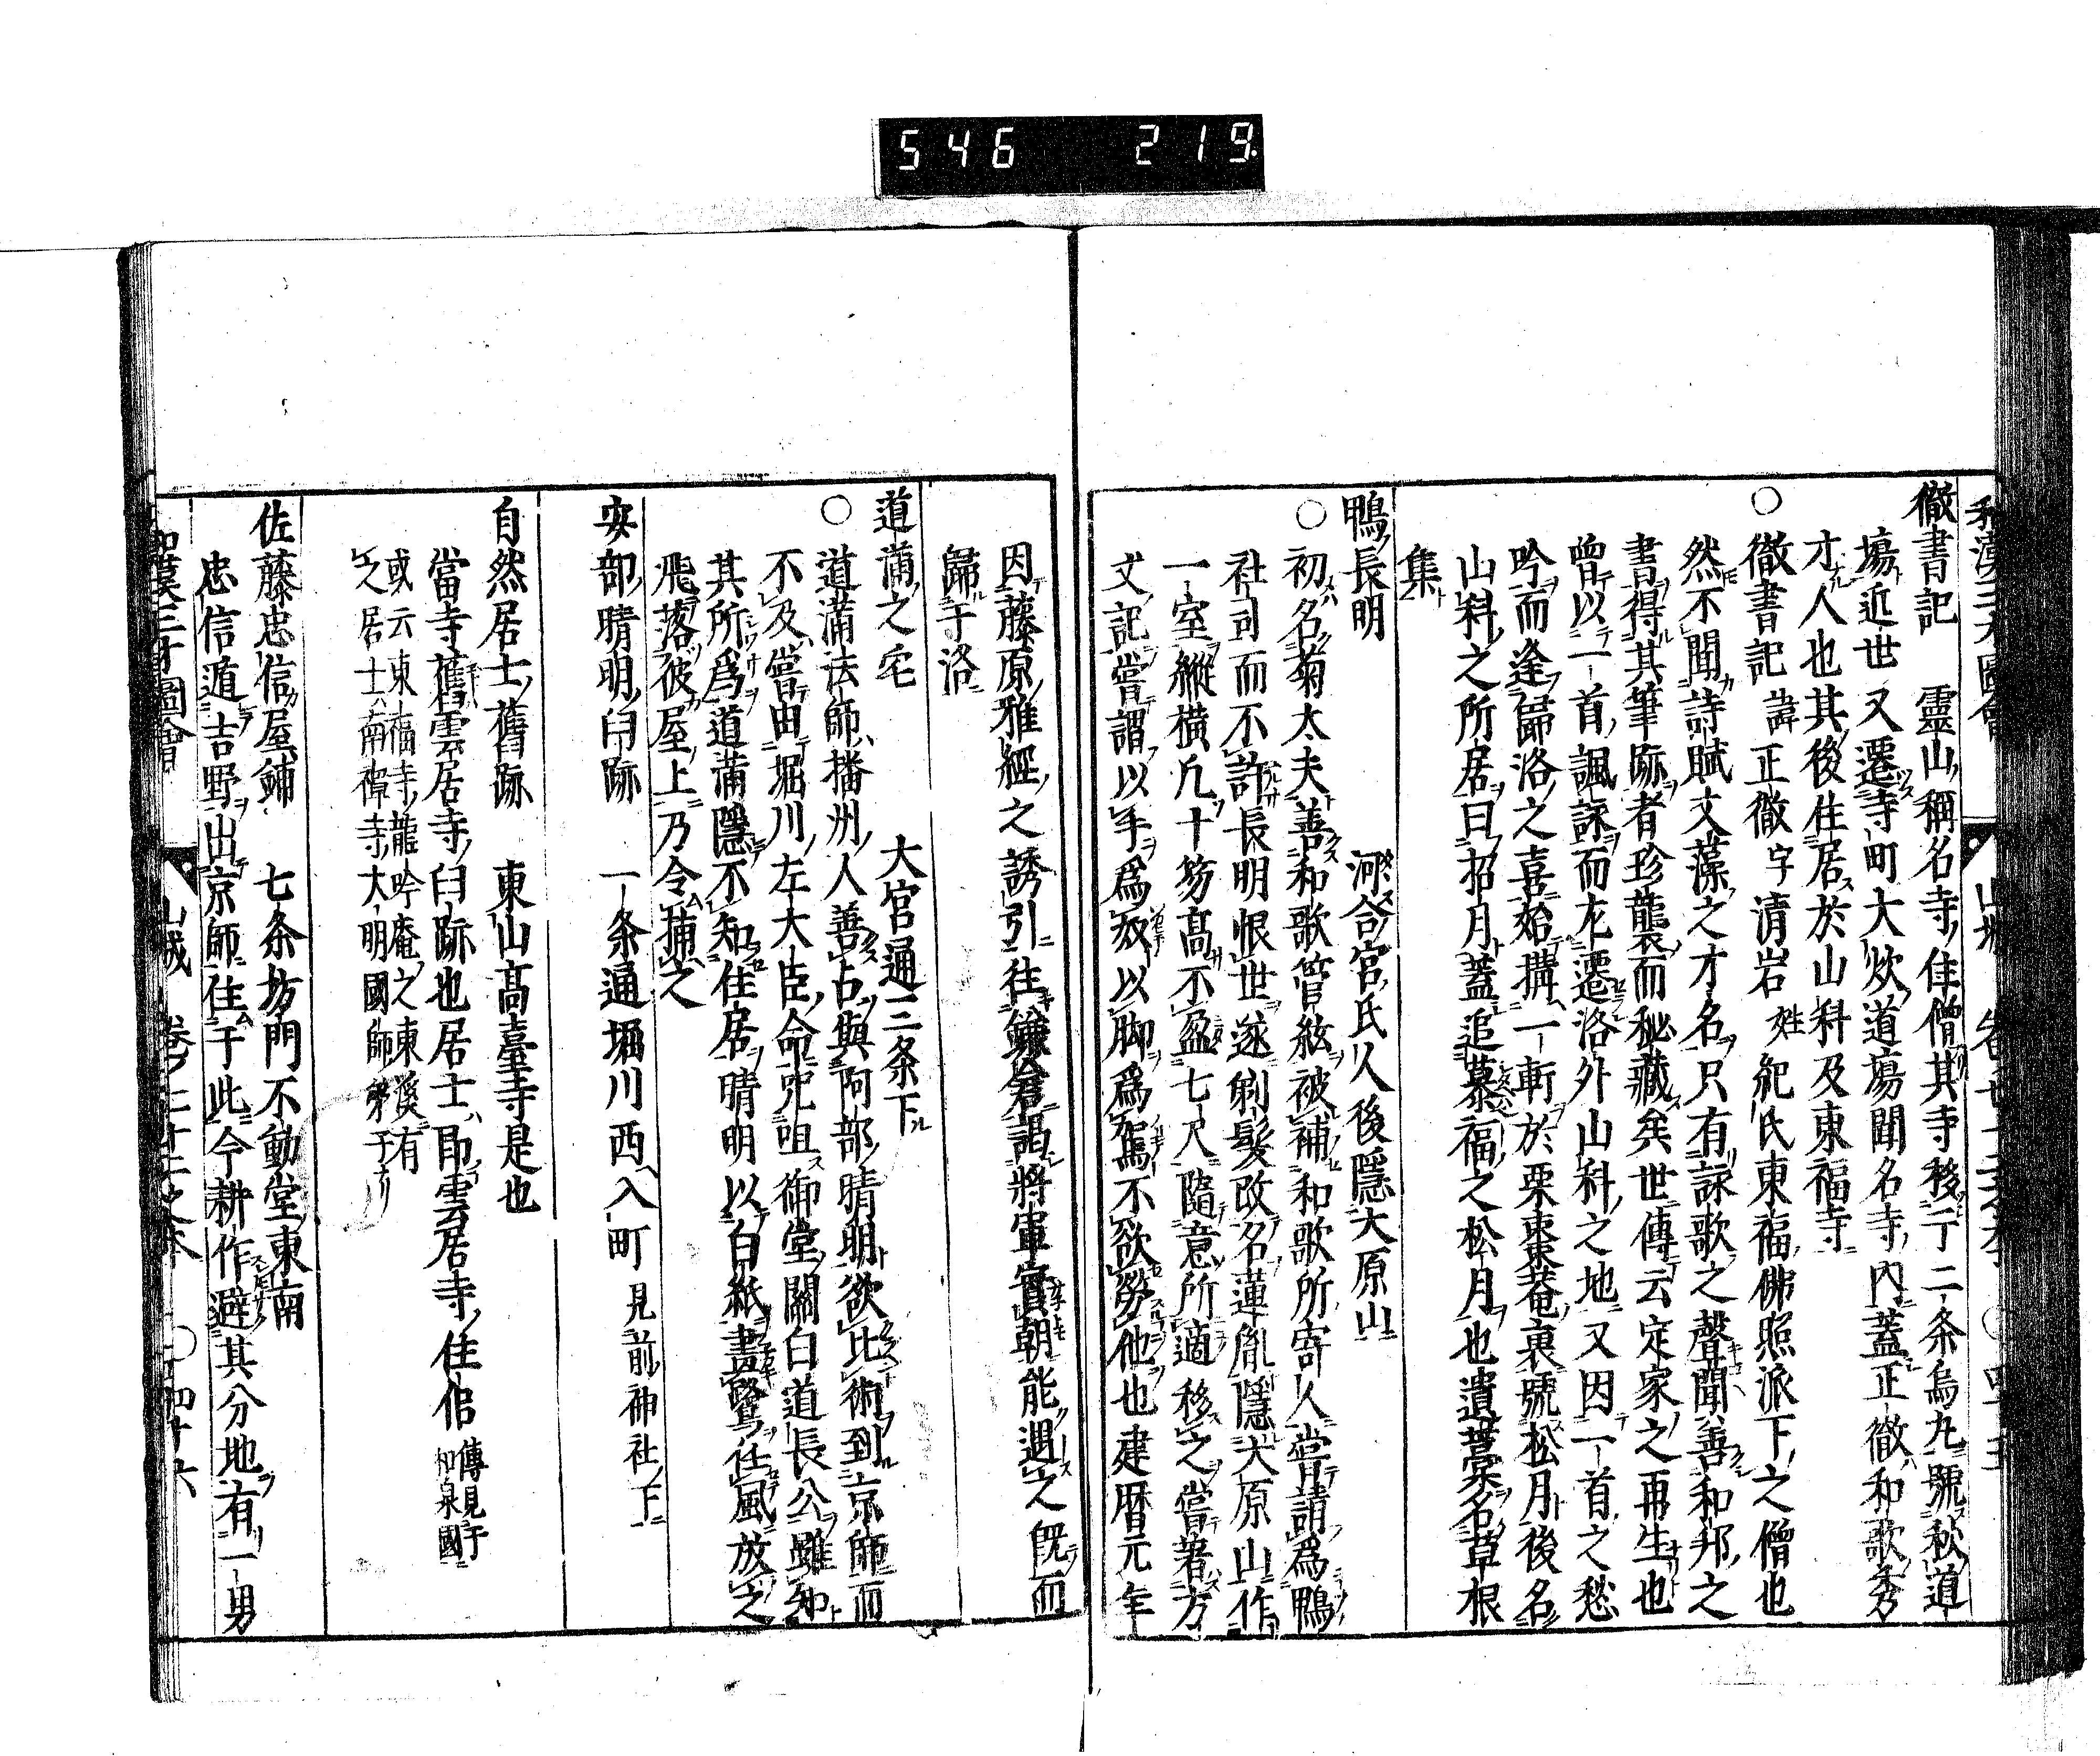 546 219
和漢三才圖會 山城 卷七十二之本 ○四十五
徹書記 靈山稱名寺住僧其寺移于二条烏丸號秋道
場近世又遷寺町大炊道場聞名寺内蓋正徹和歌秀
才人也其後住居於山科及東福寺
○徹書記 諱正徹字清岩姓紀氏東福佛照派下之僧也
然不聞詩賦文藻之才名只有詠歌之聲聞善和邦之
書得其筆跡者珍襲而秘藏矣世傳云定家之再生也
曾以一首諷詠而左遷洛外山科之地又因一首之愁
吟而逢歸洛之喜始搆一斬於栗棘菴裏號松月後名
山科之所居曰招月蓋追慕福之松月也遺藁名草根
集
鴨長明 河合宮氏人後隱大原山
○初名菊太夫善和歌管絃被補和歌所寄人嘗請爲鴨
社司而不許長明恨世遂剃髮改名蓮胤隱大原山作
一室縱横凢十笏高不盈七尺隨意所適移之嘗著方
丈記嘗謂以手爲奴以脚爲駕不欲勞他也建暦元年
因藤原雅經之誘引往鎌倉謁將軍實朝能遇之既而
歸于洛
道滿之宅 大宮通三条下
○道滿法師播州人善占與阿部晴明欲比術到京師而
不及嘗由堀川左大臣命咒咀御堂關白道長公雖知
其所爲道滿隱不知住居晴明以白紙畫鷺任風放之
飛落彼屋上乃令捕之
安部晴明臼跡 一条通堀川西入町 見前神社下
自然居士舊跡 東山高臺寺是也
當寺舊雲居寺臼跡也居士即雲居寺住侶 傳見于和泉國
或云東福寺龍吟庵之東溪有
之居士南禪寺大明國師弟子
佐藤忠信屋鋪 七条坊門不動堂東南
忠信遁吉野出京師住于此今耕作避其分地有一男
和漢三才圖會 山城 卷七十二之本 ○四十六